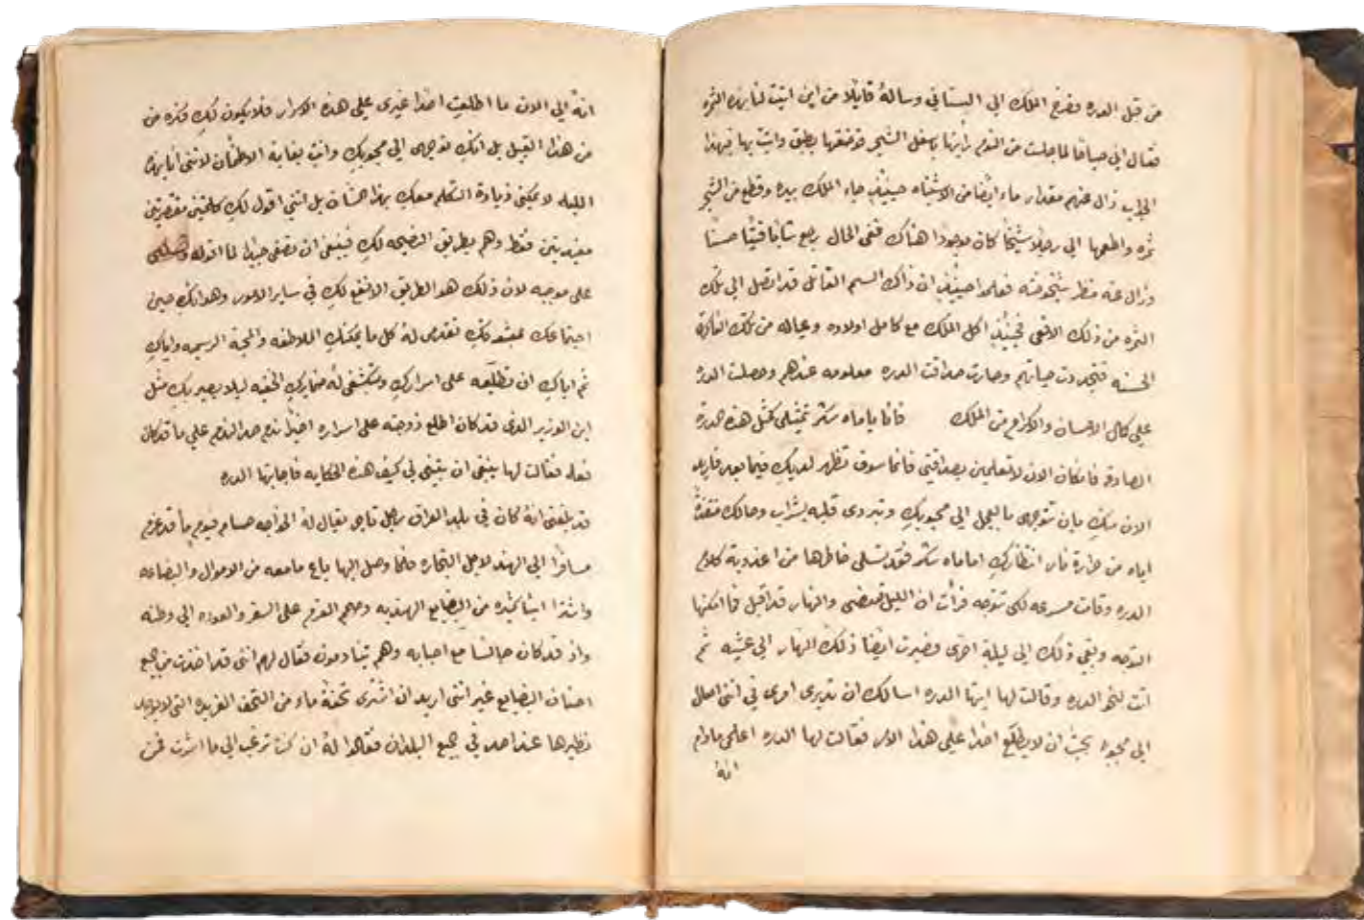 من قبل الدره فصرخ الملك الي البستاني وسالهُ قايلًا من اين اتيت لنا بهذه الثمره
فقال اني صباحًا لما جلست من النوم رايتها باسفل الشجر فوضعتها بطبق واتيت بها فبهذا
الجواب زال عنهم مقدار ماء ايضًا من الاشتباه حينيذٍ جاء الملك بيده وقطع من الشجر
ثمره واطعمها الي رجلًا شيخًا كان موجودًا هناك ففي الحال رجع شابًا فتيًا حسنًا
وزال عنه منظر شيخوخته فعلموا حينيذٍ ان ذاك السم القاتل قد اتصل الي تلك
الثمره من ذلك الافعي فحينيذٍ اكل الملك مع كامل اولاده وعياله من تلك الفاكهة
الحسنه فتجددت حياتهم وصارت صداقت الدره معلومه عندهم وحصلت الدره
علي كمال الاحسان والاكرام من الملك فانا ياماه شكر تمثيلي كمثل هذه الدرة
الصادقه فان كان الان لا تعلمين بصداقتي فانها سوف تظهر لديكِ فيما بعد فاريد
الان منكِ بان تتوجهي بالعجل الي محبوبكِ وتبردي قلبه بشراب وصالك منقذةً
اياه من حرارة نار انتظاركِ اما ماه شكر فقد تسلي خاطرها من اعذوبة كلام
الدره وقامت مسرعه لكي تتوجه فرأت ان الليل قد مضي والنهار قد اقبل فما امكنها
التوجه وبقي ذلك الي ليلة اخري فصبرت ايضًا ذلك النهار الي عشيه ثم
اتت لنحو الدره وقالت لها ايتها الدره اسالك ان تدبري امري في انني اصل
الي محبوبي بحيث ان لا يطلع احدًا علي هذا الامر فقالت لها الدره اعلمي مادام
انهُ
انهُ الي الان ما اطلعتِ احدًا غيري علي هذه الاسرار فلا يكون لكِ فكره من
من هذا القبيل بل انك توجهي الي محبوبكِ وانتِ بغاية الاطمأن لانني انا بهذه
الليله لا يمكني زيادة التكلم معكِ بل انني اقول لكِ كلمتين مختصرتين
مفيدتين فقط وهم بطريق النصيحه لكِ فينبغي ان تصغي جيدًا لما اقوله وتعملي
علي موجبه لان ذلك هو الطريق الانفع لكِ في ساير الامور وهو انكِ حين
اجتماعكِ بمعشوقكِ تقدمي لهُ كل ما يمكنكِ الملاطفه والمحبة الرسميه واياكِ
ثم اياكِ ان تطلعيه علي اسراركِ وتكشفي لهُ ضمايركِ الخفيه ليلا يصير بكِ مثل
ابن الوزير الذي قد كان اطلع زوجته علي اسراره اخيرًا ندم حد الندم علي ما قد كان
فعله فقالت لها ينبغي ان تبيني لي كيف هذه الحكايه فاجابتها الدره
قد بلغني انهُ كان في بلاد العراق رجل تاجر يقال لهُ الخواجه حسام فيوم ما قد عزم
مسافرًا الي الهند لاجل التجاره فلما وصل اليها باع ما معه من الاموال والبضاعه
واشترا اشيا كثيره من البضايع الهنديه وصمم العزم علي السفر والعوده الي وطنه
واذ قد كان جالسًا مع احبابه وهم يتنادمون فقال لهم انني قد اخذت من جميع
اصناف البضايع غير انني اريد ان اشتري تحفةً ماء من التحف الفريده التي لا يوجد
نظيرها عند احد في جميع البلدان فقالوا لهُ ان كنت ترغب الي ما اشرت فمن